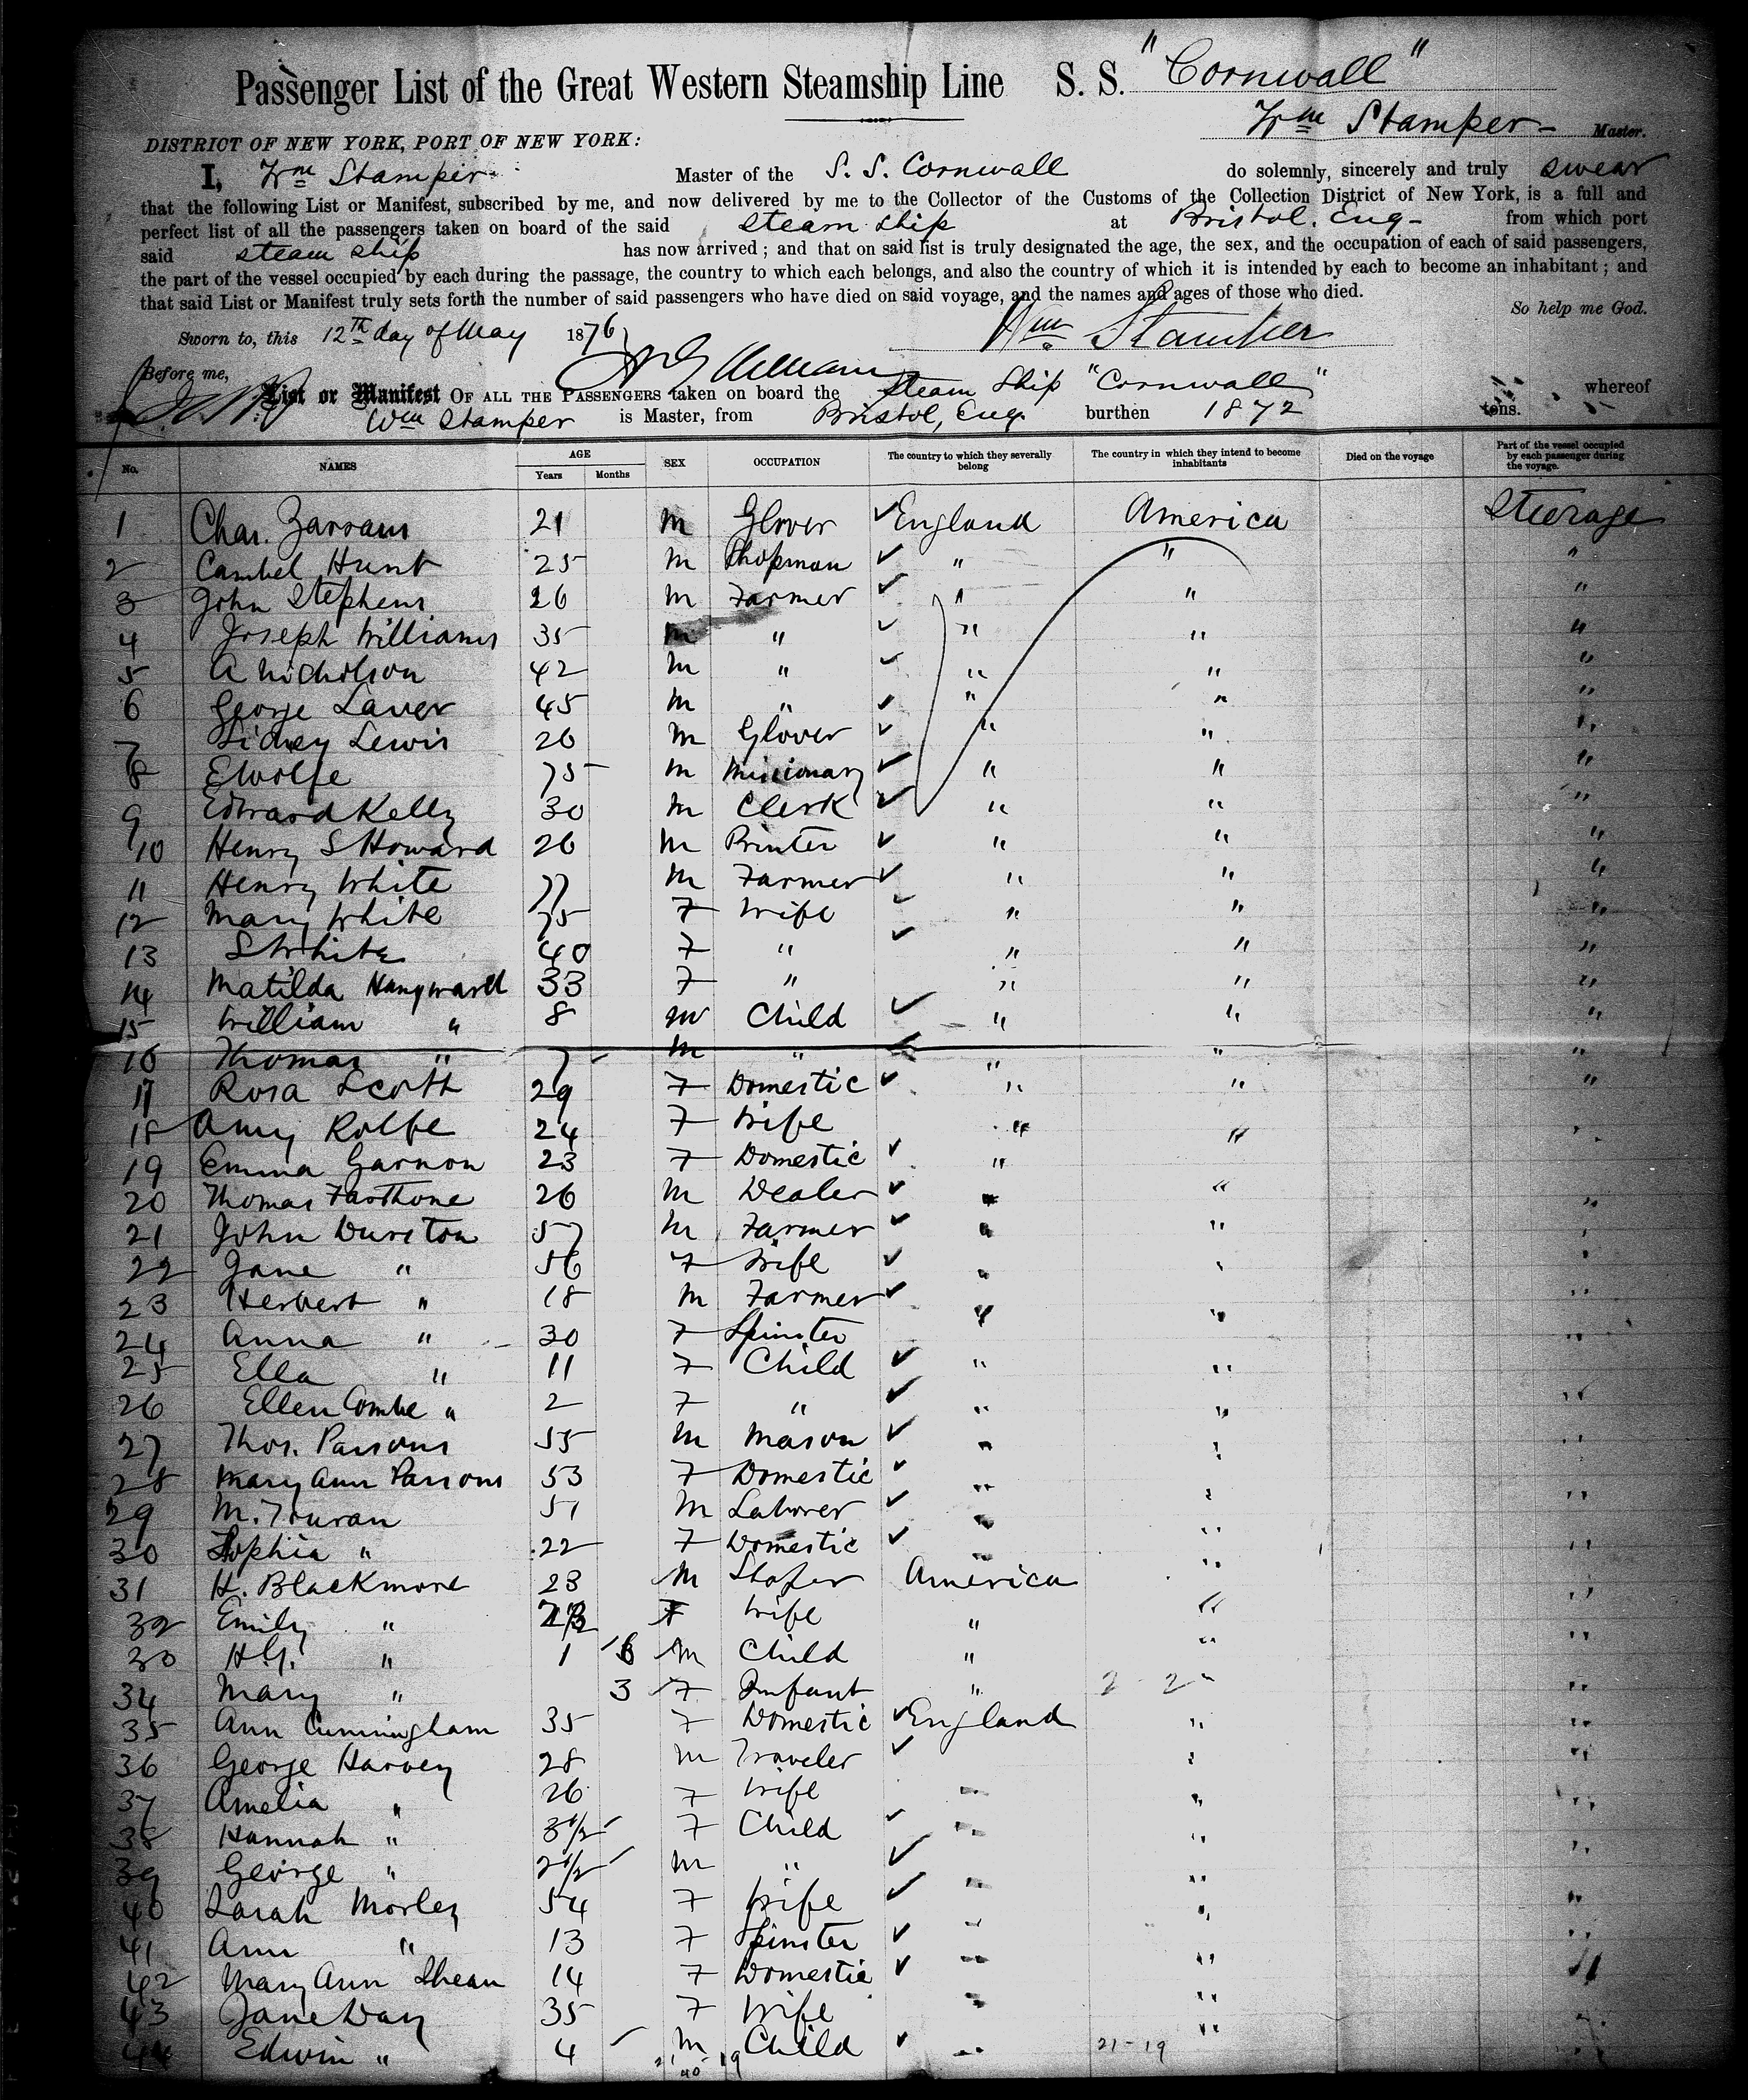 Passenger List of the Great Western Steamship Line S. S. "Cornwall"
Wm Stamper- Master.
DISTRICT OF NEW YORK, PORT OF NEW YORK:
I, Wm Stamper Master of the S. S. Cornwall do solemnly, sincerely and truly swear
that the following List or Manifest, subscribed by me, and now delivered by me to the Collector of the Customs of the Collection District of New York, is a full and
perfect list of all the passengers taken on board of the said steam ship at Bristol. Eng- from which port
said steam ship has now arrived; and that on said list is truly designated the age, the sex, and the occupation of each of said passengers,
the part of the vessel occupied by each during the passage, the country to which each belongs, and also the country of which it is intended by each to become an inhabitant; and
that said List or Manifest truly sets forth the number of said passengers who have died on said voyage, and the names and ages of those who died.
So help me God.
Sworn to, this 12th day of May 1876 Wm Stamper
Before me,
List or Manifest OF ALL THE PASSENGERS taken on board the Steam Ship "Cornwall" whereof
Wm Stamper is Master, from Bristol, Eng. burthen 1872 tons.
No. NAMES AGE Years Months SEX OCCUPATION The country to which they severally belong The country in which they intend to become inhabitants Died on the voyage Part of the vessel occupied by each passenger during the voyage.
1 Chas. 21 M Glover England America Steerage
2 Cambel Hunt 25 M Shopman " " "
3 John Stephens 26 M Farmer " " "
4 Joseph Williams 35 M " " " "
5 A Nicholson 42 M " " " "
6 George Laver 45 M " " " "
7 Sidney Lewis 26 M Glover " " "
8 E Wolfe 75 M Missionary " " "
9 Edward Kelly 30 M Clerk " " "
10 Henry S Howard 26 M Printer " " "
11 Henry White 77 M Farmer " " "
12 Mary White 75 F Wife " " "
13 S White 40 F " " " "
14 Matilda 33 F " " " "
15 William " 8 M Child " " "
16 Thomas " 7 M " " " "
17 Rosa Scott 29 F Domestic " " "
18 Amy Rolfe 24 F Wife " " "
19 Emma Garnon 23 F Domestic " "
20 Thomas 26 M Dealer " " "
21 John Durston 57 M Farmer " " "
22 Jane " 56 F Wife " " "
23 Herbert " 18 M Farmer " "
24 Anna " 30 F Spinster " " "
25 Ella " 11 F Child " " "
26 Ellen Combe " 2 F " " " "
27 Thos. Parsons 55 M Mason " " "
28 Mary Ann Parsons 53 F Domestic " " "
29 M. 51 M Laborer " " "
30 Sophia " 22 F Domestic " " "
31 H. Blackmore 23 M America " "
32 Emily " F Wife " " "
33 H.G. " 1 6 M Child " " "
34 Mary " 3 F Infant " 2-2 " "
35 Ann Cunningham 35 F Domestic England " "
36 George Harvey 28 M Traveler " "
37 Amelia " 26 F Wife " " "
38 Hannah " 3 1/2 F Child " " "
39 George " 2 1/2 M " " "
40 Sarah Morley 54 F Wife " " "
41 Ann " 13 F Spinster " " "
42 Mary Ann Shean 14 F Domestic " " "
43 Jane Day 35 F Wife " "
44 Edwin " 4 M Child " 21-19